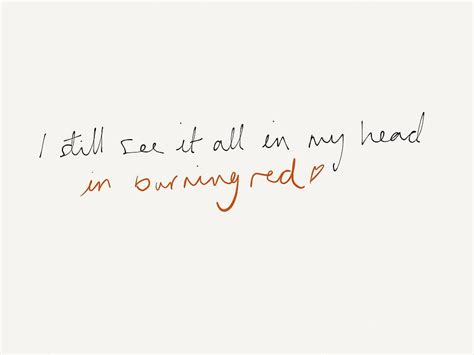 I still see it all in my head
in burning red